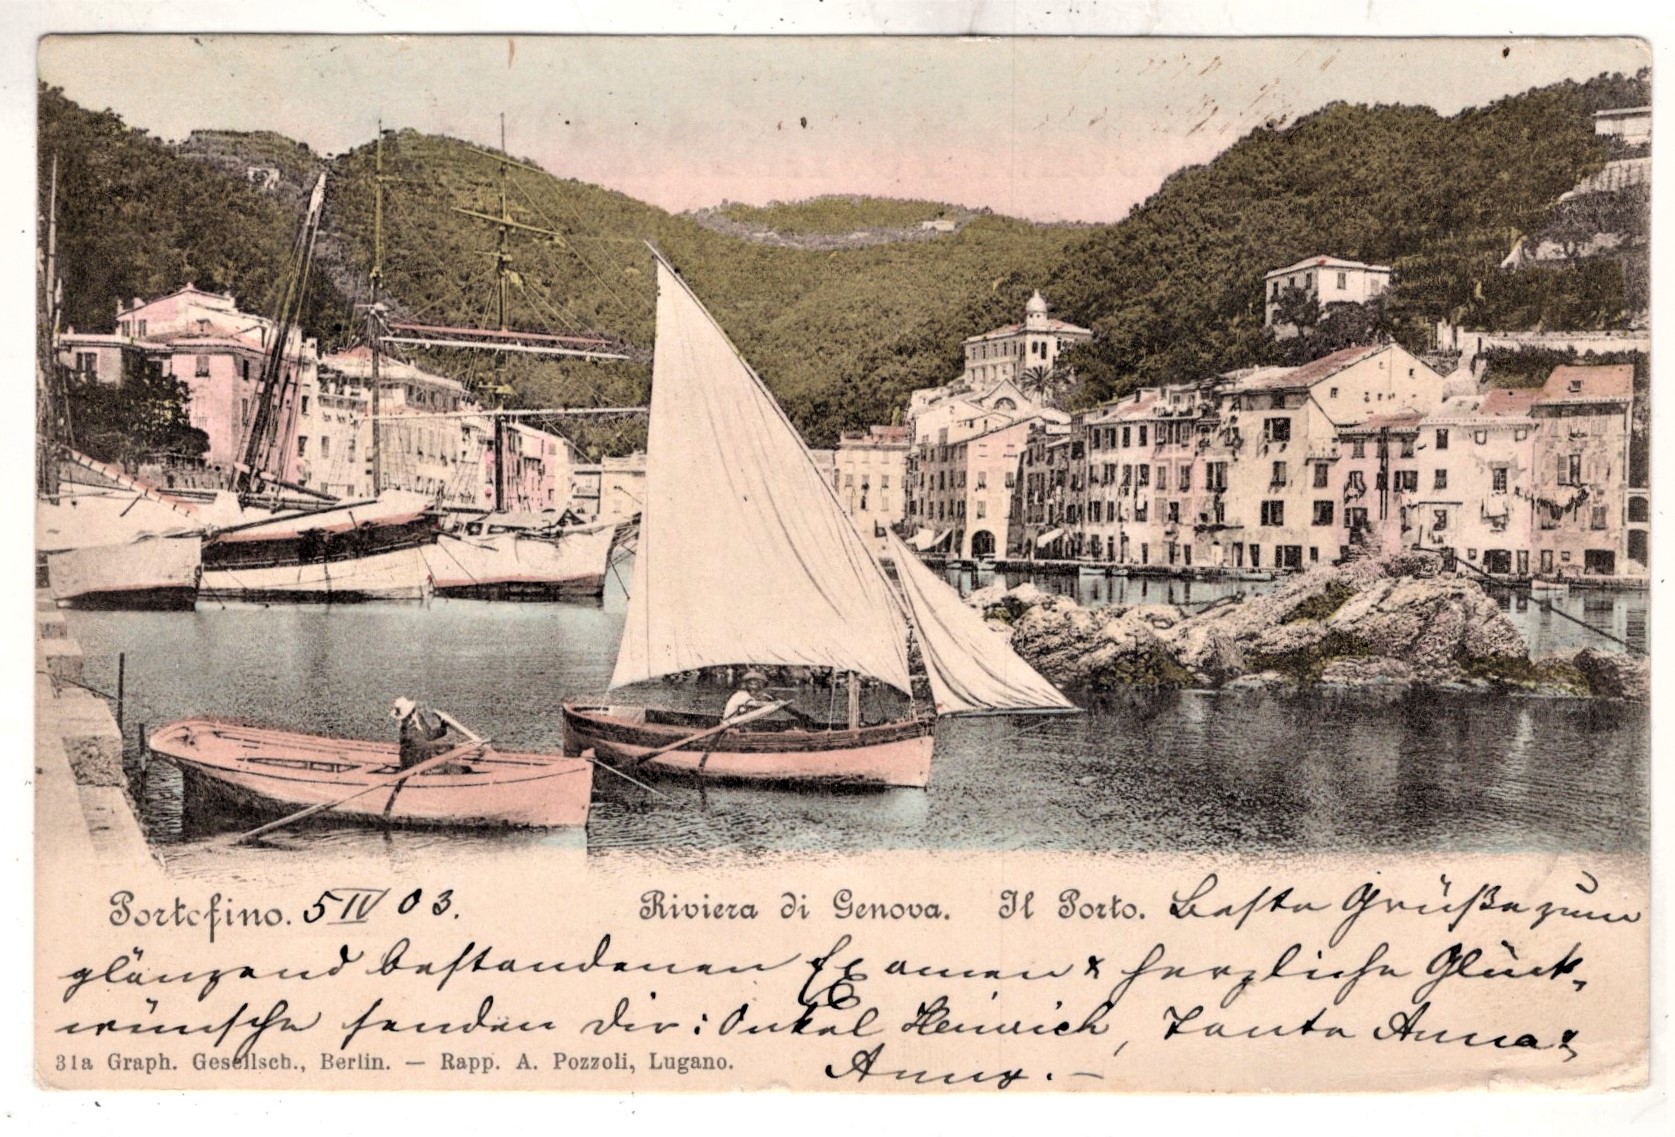 Portofino. 5 IV 03. Riviera di Genova. Il Porto. Beste Grüße zum
glänzend bestandenen Examen & herzliche Glück-
wünsche senden Dir: Onkel Heinrich, Tante Anna &
Anny. –
31a Graph. Gesellsch., Berlin. — Rapp. A. Pozzoli, Lugano.